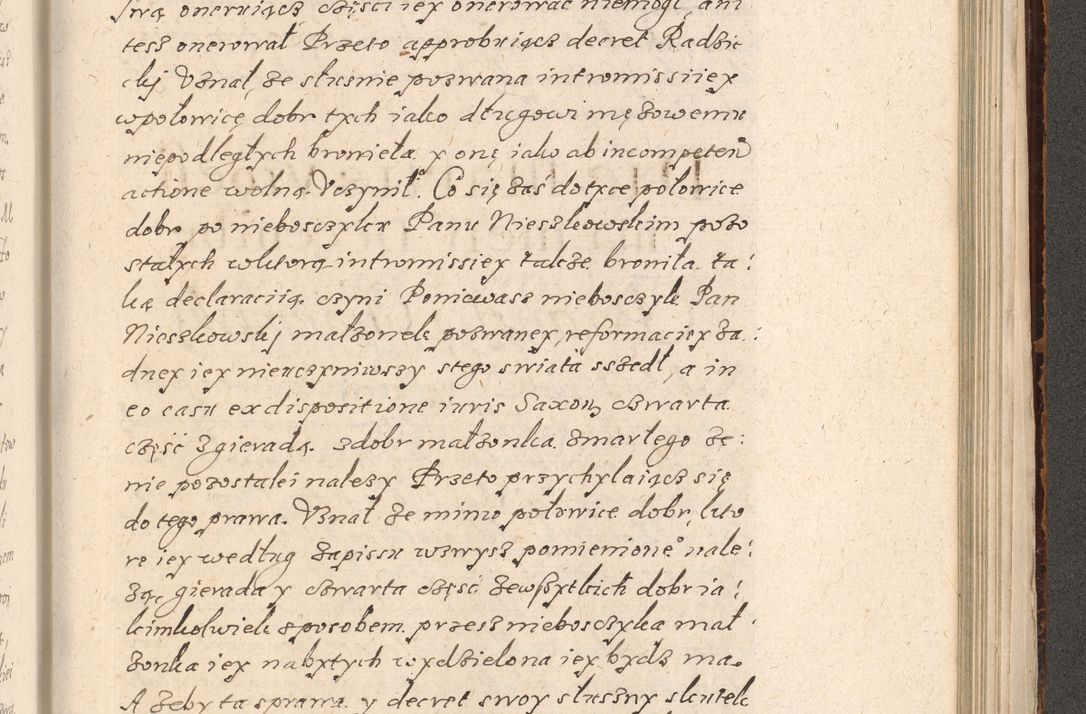 swą oneruiącz częsci iey onerowac niemogł, ani
tesz onerował Przeto approbuiącz decret Radzie
cki Vznał, że słusnie pozwana intromissiiey
wpołowicę dobr tych iako długowi mężowemu
niepodległych broniela y onę iako ab incompeten
actione wolną Vczynił. Co się zaś dotyce połowice
dobr po niebosczyku Panu Nieszkowskim pozo
stałych wktorą intromissiey także broniła ta:
ką declaraciią czyni Poniewasz niebosczyk Pan
Nieszkowski małżonek pozwaney, reformaciey ża:
dney iey nieuczyniwszy stego swiata sszedł, a in
eo casu ex dispositione iuris Saxon, czwarta
część zgieradą zdobr małżonka zmarłego że:
nie pozostałei należy Przeto przychylaiącz się
do tego prawa. Vznał że mimo połowice dobr, kto
re iey według zapissu wzwysz pomienione° nale:
żąc gierada y czwarta część zewszytkich dobr ia:
kimkolwiek sposobem przesz niebosczyka mał:
żonka iey nabytych wydzielona iey bydz ma.
A żeby ta sprawa y decret swoy słuszny skutek